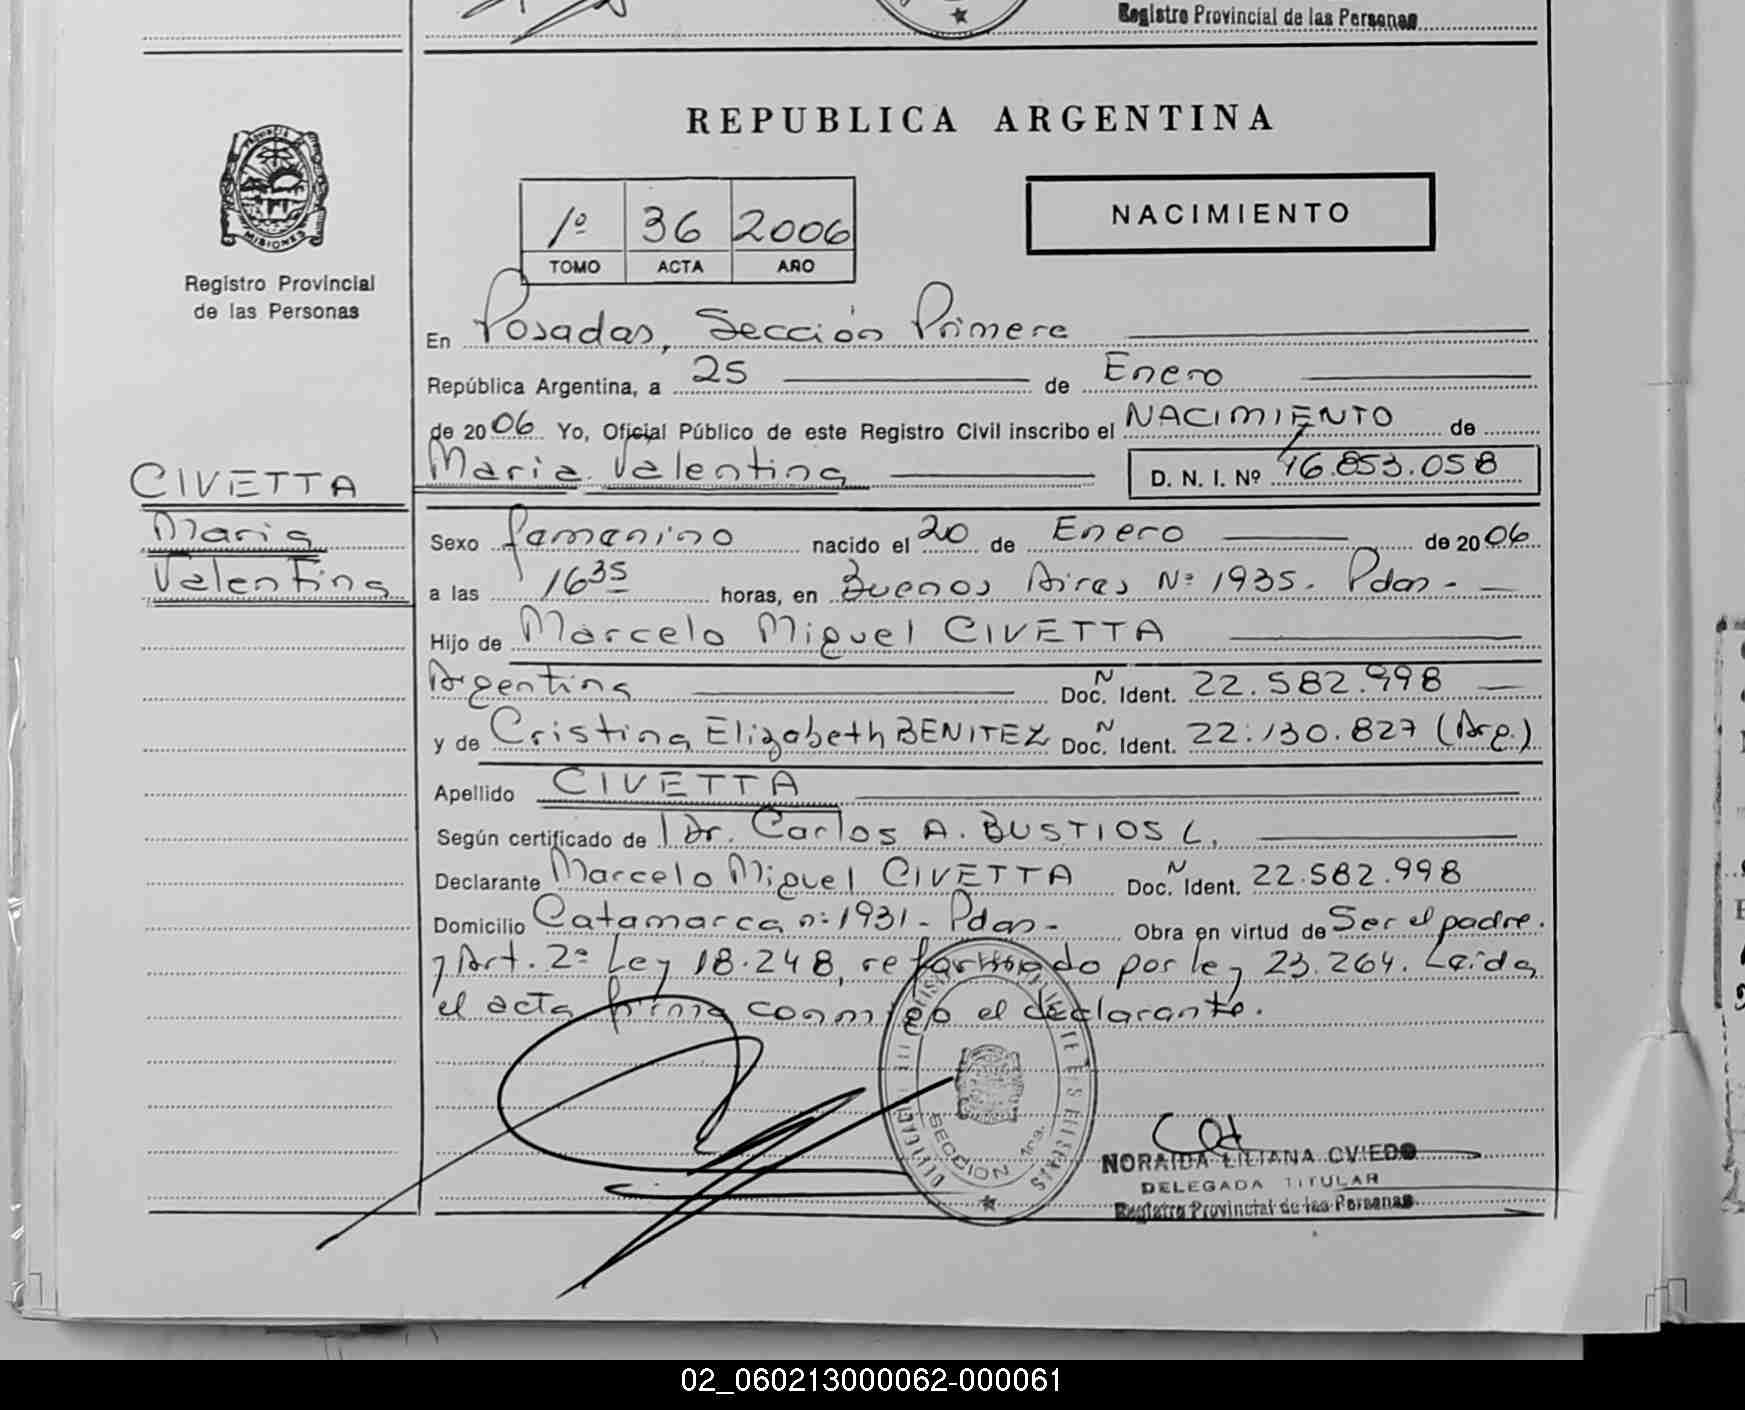 Registro Provincial de las Personas
REPUBLICA ARGENTINA
1º 36 2006
TOMO ACTA AÑO
NACIMIENTO
MISIONES
Registro Provincial
de las Personas
En Posadas, Sección Primera
República Argentina, a 25 de Enero
de 2006 Yo, Oficial Público de este Registro Civil inscribo el NACIMIENTO de
Maria Valentina D. N. I. Nº 46.853.058
CIVETTA
Maria
Valentina
Sexo femenino nacido el 20 de Enero de 2006
a las 16 35 horas, en Buenos Aires Nº 1935. Pdas -
Hijo de Marcelo Miguel CIVETTA
Argentina Doc. N Ident. 22.582.998
y de Cristina Elizabeth BENITEZ Doc. N Ident. 22.130.827 (Arg.)
Apellido CIVETTA
Según certificado de l Dr. Carlos A. BUSTIOS L.
Declarante Marcelo Miguel CIVETTA Doc. N Ident. 22.582.998
Domicilio Catamarca nº 1931 - Pdas - Obra en virtud de Ser el padre.
y Art. 2º Ley 18.248, reformado por ley 23.264. Leida
el acta firma conmigo el declarante.
SECCION 1ra.
NORAIDA LILIANA OVIEDO
DELEGADA TITULAR
Registro Provincial de las Personas
02_060213000062-000061